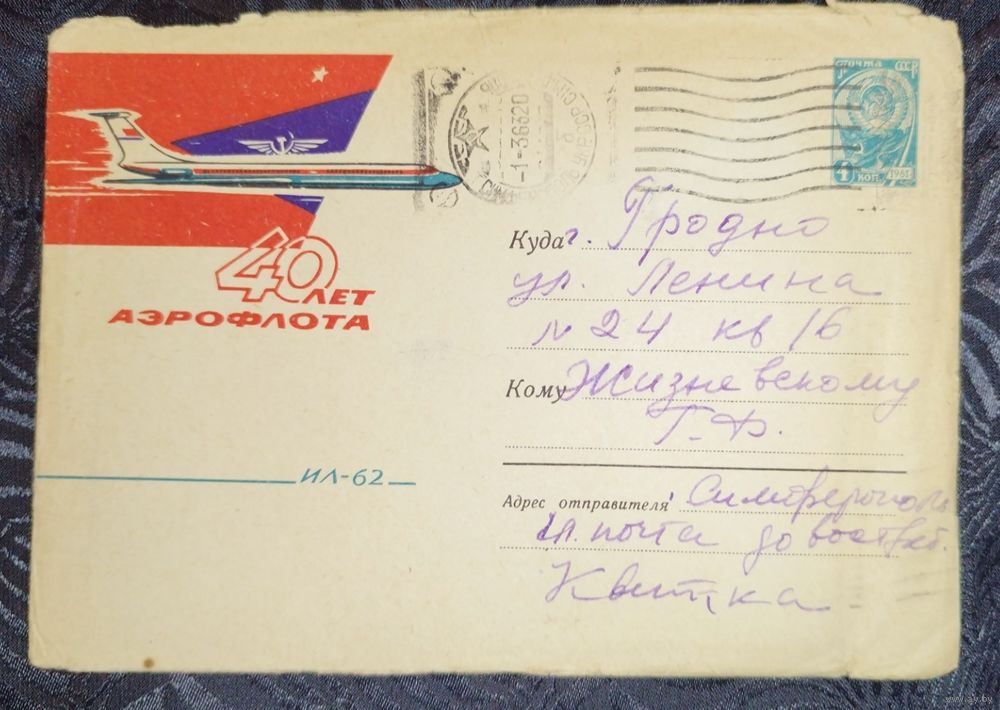 ПОЧТА СССР
4 КОП.
1961
-1-3 6320
40 ЛЕТ
АЭРОФЛОТА
ИЛ-62
Куда г. Гродно
ул. Ленина
№ 24 кв 16
Кому Жизневскому
Г.Ф.
Адрес отправителя: Симферополь
гл. почта до востреб.
Квитка
www.ay.by